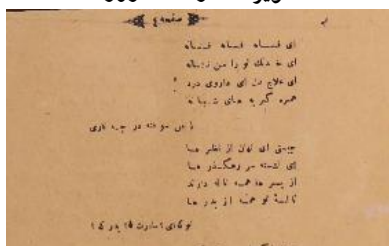 صفحه ٤
ای فسانه فسانه فسانه
ای خدنك تو را من نشانه
ای علاج دل ای داروی درد
همره گریه های شبانه
با من سوخته در چه کاری
چیستی ای نهان از نظر ها
ای نشسته سر رهگذر ها
از پسر ها همه ناله دارند
نالهٔ تو همه از پدر ها
تو که‌ای؟ مادرت که؟ پدر که؟